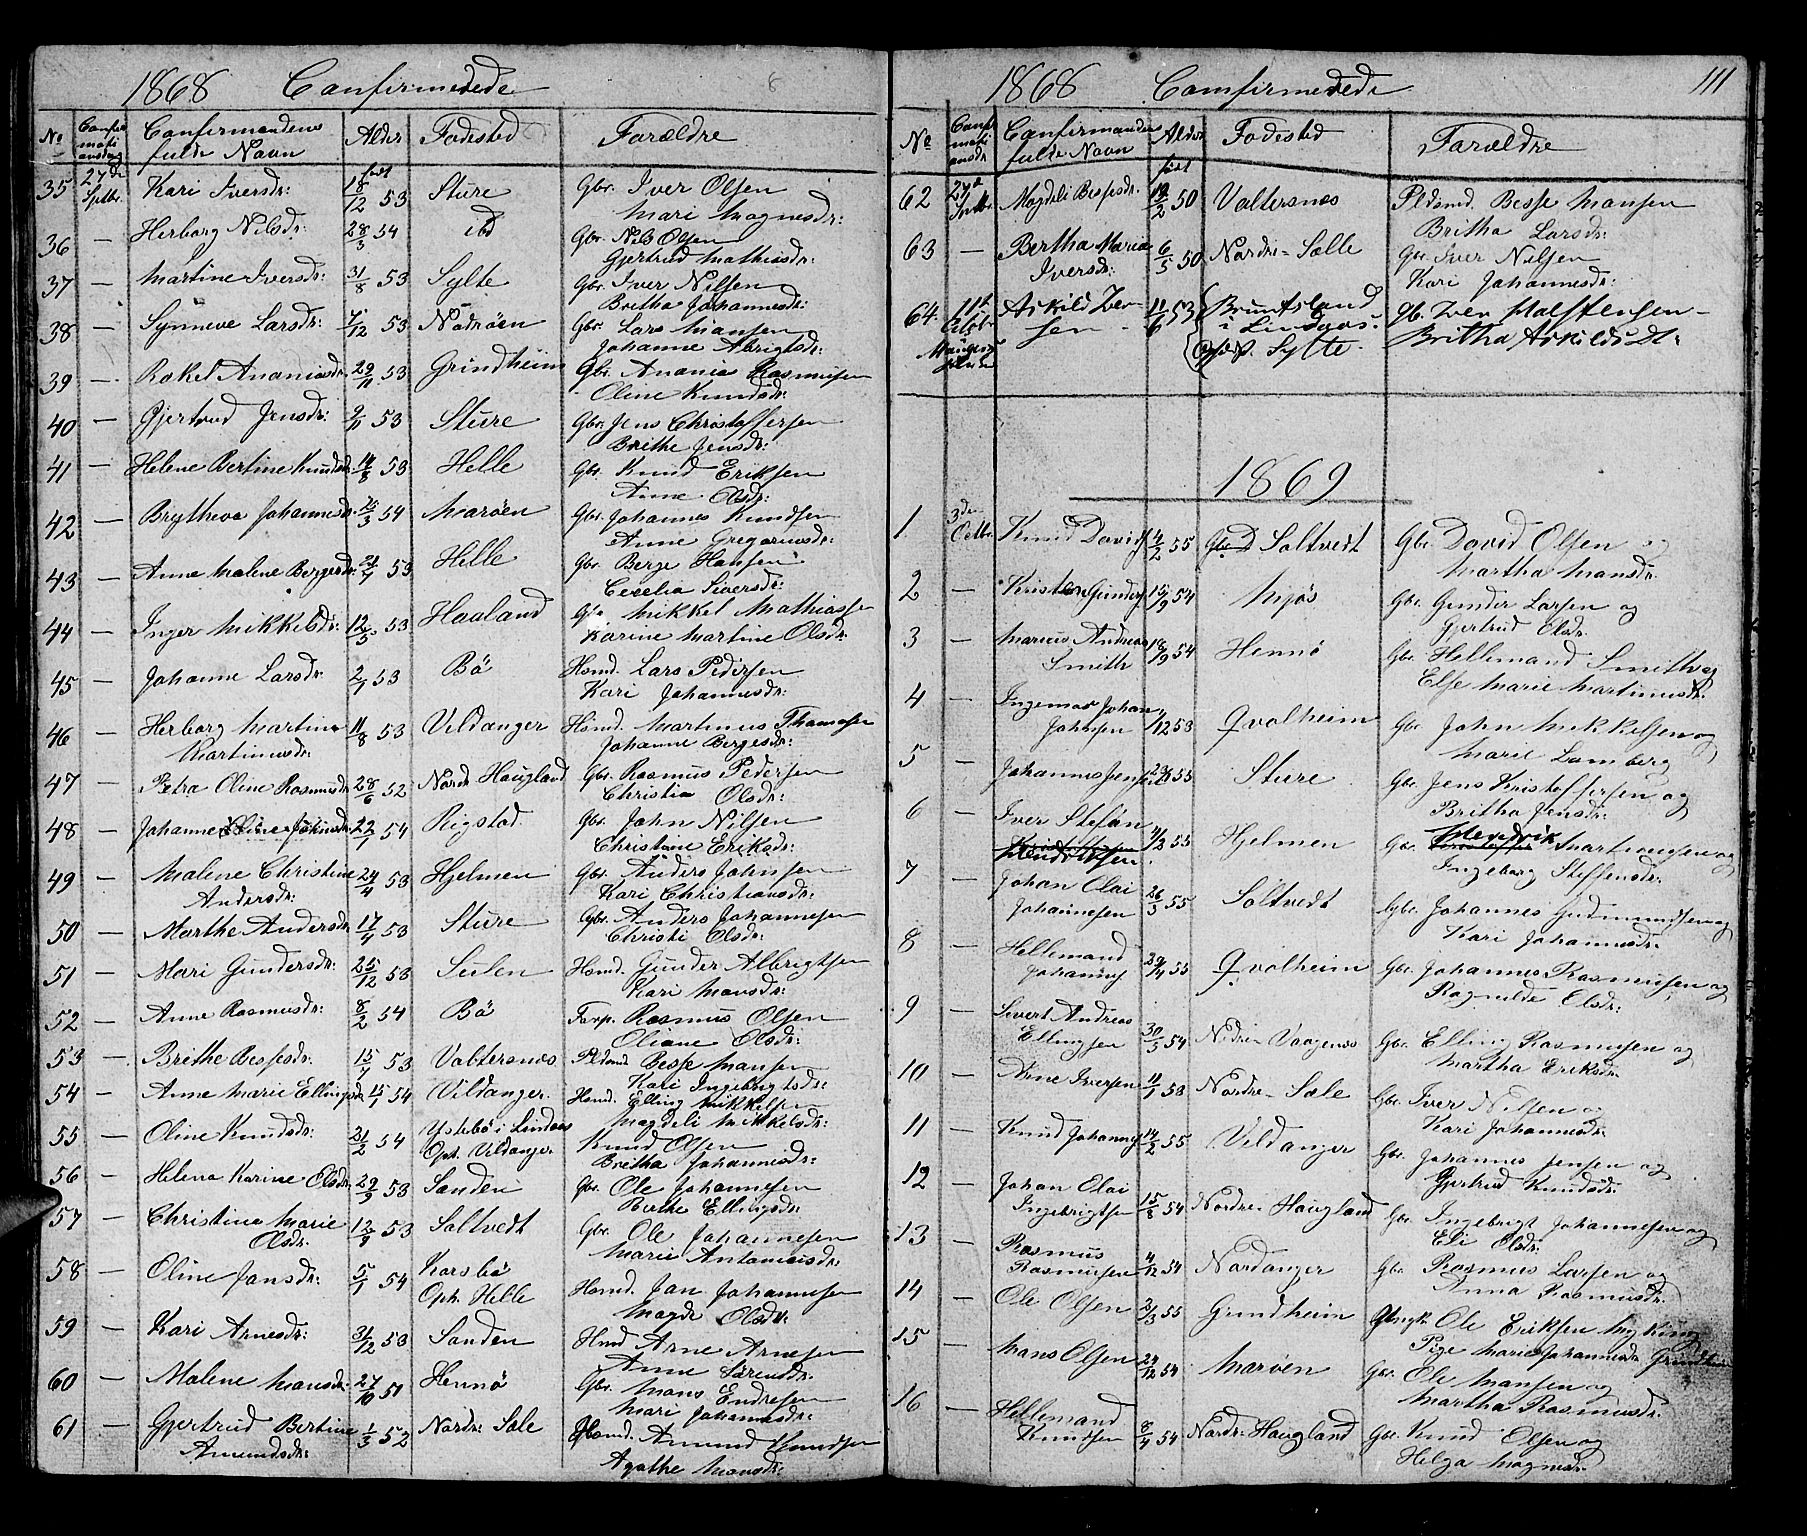 1868 Confirmerede
No Confirmationsdag Confirmandens fulde Navn Alder Fødested Forældre
35 27de Sptbr. Kari Iversdr: født 18/12 53 Sture Gbr. Iver Olsen
Mari Magnesdr:
36 — Herborg Nilsdr: 28/3 54 ibd Gbr. Nils Olsen
Gjertrud Mathiasdr:
37 — Martine Iversdr: 31/8 53 Sylte Gbr. Iver Nilsen
Britha Johannesdr:
38 — Synneve Larsdr: 7/12 53 Nodrøen Gbr. Lars Mansen
Johanne Abrigtsdr:
39 — Rakel Ananiasdr. 29/11 53 Grindheim Gbr. Ananias Rasmusen
Oline Knudsdr:
40 — Gjertrud Jensdr: 2/11 53 Sture Gbr. Jens Christoffersen
Brithe Jensdr:
41 — Helene Bertine Knudsdr. 14/8 53 Helle Gbr. Knud Eriksen
Anne Olsdr:
42 — Brytheva Johannesdr. 20/3 54 Marøen Gbr. Johannes Knudsen
Anne Gregoriusdr:
43 — Anne Malene Bergesdr. 21/7 53 Helle Gbr. Berge Hansen
Cecelia Siversdr:
44 — Inger Mikkelsdr: 12/5 53 Haaland Gbr. Mikkel Mathiassen
Karine Martine Olsdr:
45 — Johanne Larsdr: 2/7 53 Bø Hsmd. Lars Pedersen
Kari Johannesdr:
46 — Herborg Martina 11/8 53 Vildanger Hsmd. Martinus Thomasen
Martinusdr: Johanne Bergesdr:
47 — Petra Oline Rasmusdr 28/6 52 Nordr. Haugland Gbr. Rasmus Pedersen
Christia Olsdr:
48 — Johanne Oline Johnsdr. 22/7 54 Rigstad Gbr. John Nilsen
Christiane Eriksdr:
49 — Malene Christine 24/4 53 Hjelmen Gbr. Anders Johnsen
Andersdr: Kari Christiansdr:
50 — Marthe Andersdr. 17/4 53 Sture Gbr. Anders Johannesen
Christi Olsdr:
51 — Mari Gundersdr: 25/12 53 Sulen Hsmd. Gunder Albrigtsen
Kari Mansdr:
52 — Anne Rasmusdr: 8/2 54 Bø Forp. Rasmus Olsen
Oliane Olsdr:
53 — Brithe Bessesdr. 15/7 53 Valtersnæs Pldsmd Besse Mansen
Kari Ingebrigtsdr:
54 — Anne Marie Ellingsdr 15/1 54 Vildanger. Hsmd. Elling Mikkelsen
Magdeli Mikkelsdr:
55 — Oline Knudsdr: 21/2 54 Ystebø i Lindaas Knud Olsen
Oph. Vildanger. Britha Johannesdr:
56 — Helena Karine Olsdr. 29/9 53 Sanden Gbr. Ole Johannesen
Birthe Ellingsdr:
57 — Christina Marie 12/9 53 Soltvedt Gbr. Ole Johannesen
Olsdr: Marie Antoniusdr:
58 — Oline Jansdr: 5/1 54 Korsbø Hsmd. Jan Johannesen
Oph. Helle Magde Olsdr:
59 — Kari Arnesdr: 31/12 53 Sanden Hsmd Arne Arnesen
Anne Sørensdr:
60 — Malene Mansdr. 27/10 51 Hennø Gbr. Mans Endresen
Mari Johannesdr:
61 — Gjertrud Bertine 1/3 52 Nordr. Sæle Hsmd. Amund Knudsen
Amundsdr: Agathe Mansdr:
1868 Comfirmerede 111
No Confirmationsdr Confirmandens fulde Navn Alder Fødested Forældre
62 27de Sptbr. Magdeli Bessesdr. født 12/2 50 Valtersnæs Pldsmd. Besse Mansen
Britha Larsdr:
63 — Bertha Maria 6/5 50 Nordre-Sælle Gbr. Iver Nilsen
Iversdr: Kari Johannesdr:
64. 11te Octbr. Askild Iver- 11/6 53 Bruntsland gb. Iver Halstensen-
sen - i Lindaas. Britha Askildsdt.
Manger Kirke Oph. Sylte.
1869
1 3de Octbr. Knud Davids 4/2 55 Gbr Soltvedt Gbr. David Olsen og
Martha Mansdr.
2 — Kristen Gunders 15/9 54 Mjøs Gbr. Gunder Larsen og
Gjertrud Olsdr.
3 — Marius Andreas 18/9 54 Hennø Gbr. Hellemand Smith og
Smith Else Marie Martinusdr:
4 — Ingemar Johan /12 53 Qvalheim Gbr. John Mikkelsen og
Johnsen Marie Lamberg
5 — Johannes Jensen 55 Sture Gbr. Jens Kristoffersen og
Britha Jensdr:
6 — Iver Stefan 4/2 55 Hjelmen Gbr. Hendrik Martinusen og
Hendriksen. Ingeborg Steffensdr.
7 — Johan Olai 26/5 55 Soltvedt Gbr. Johannes Gudmundsen og
Johannesen Kari Johannesdr.
8 — Hellemand 29/4 55 Qvalheim Gbr. Johannes Rasmusen og
Johannes Ragnilde Olsdr.
9 — Sivert Andreas 30/5 54 Nedre-Vaagenes Gbr. Elling Rasmusen og
Ellingsen Martha Eriksdr.
10 — Arne Iversen 11/1 53 Nordre-Sæle Gbr. Iver Nilsen og
Kari Johannesdr.
11 — Knud Johannes 14/2 55 Vildanger Gbr. Johannes Jensen og
Gjertrud Knudsdr.
12 — Johan Olai 15/8 54 Nordre-Haugland Gbr. Ingebrigt Johannesen og
Ingebrigtsen Eli Olsdr.
13 — Rasmus 4/12 54 Nordanger Gbr. Rasmus Larsen og
Rasmusen Anna Rasmusdr.
14 — Ole Olsen 2/3 55 Grindheim Ungk. Ole Eriksen Myking
Pige Marie Johannesdr. Grindheim
15 — Mans Olsen 24/12 54 Marøen Gbr. Ole Mansen og
Martha Rasmusdr.
16 — Hellemand 8/4 54 Nordr. Haugland Gbr. Knud Olsen og
Knudsen Helga Magnesdr.